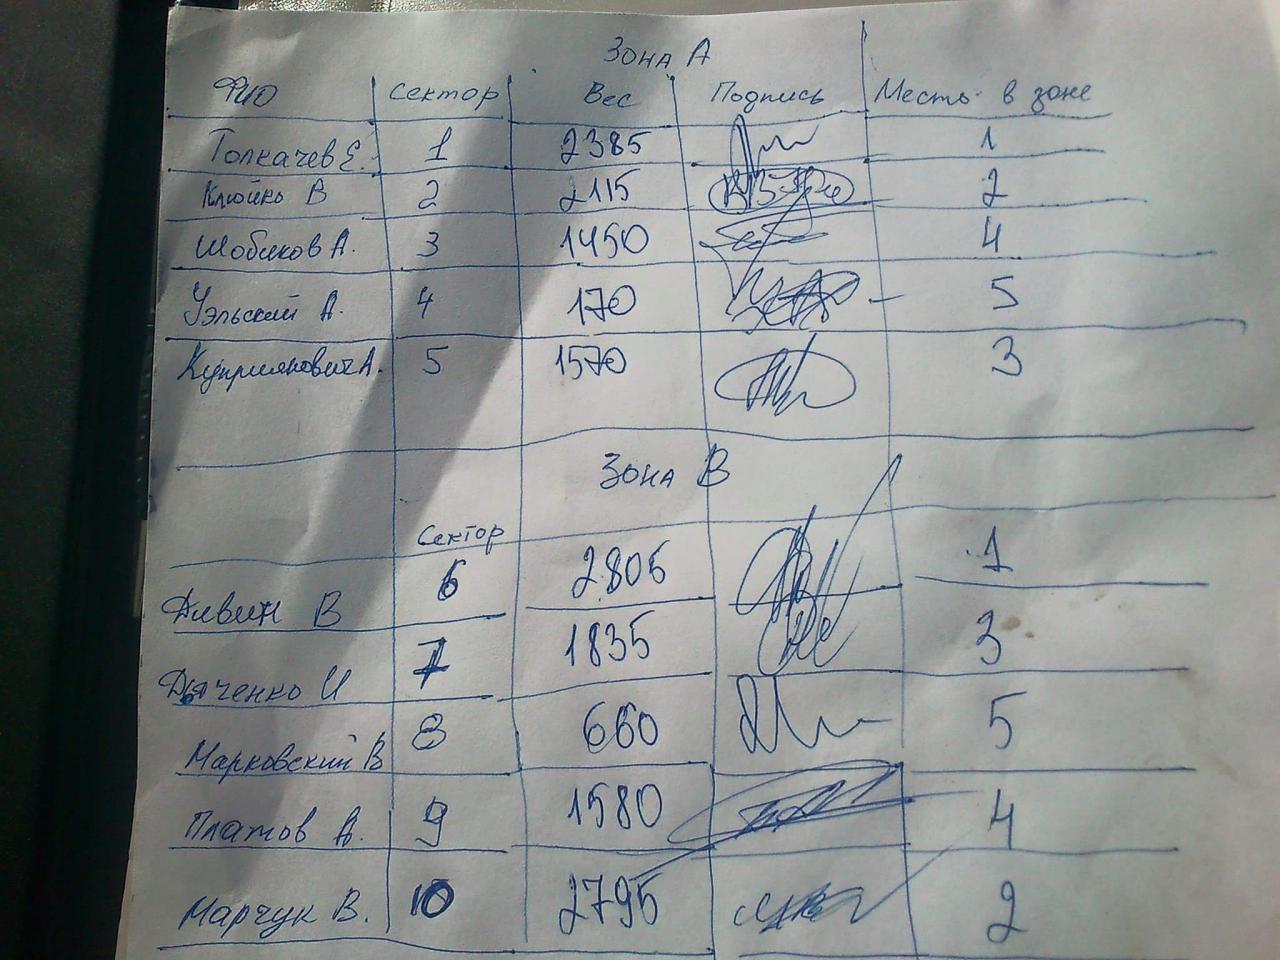 Зона А
ФИО Сектор Вес Подпись Место в зоне
Толкачев Е. 1 2385 1
Клюйко В 2 2115 2
Шобиков А. 3 1450 4
Уэльский А. 4 170 5
Куприянович А. 5 1570 3
Зона В
Сектор
Дивин В 6 2805 1
Дяченко И 7 1835 3
Марковский В 8 660 5
Платов А. 9 1580 4
Марчук В. 10 2795 2